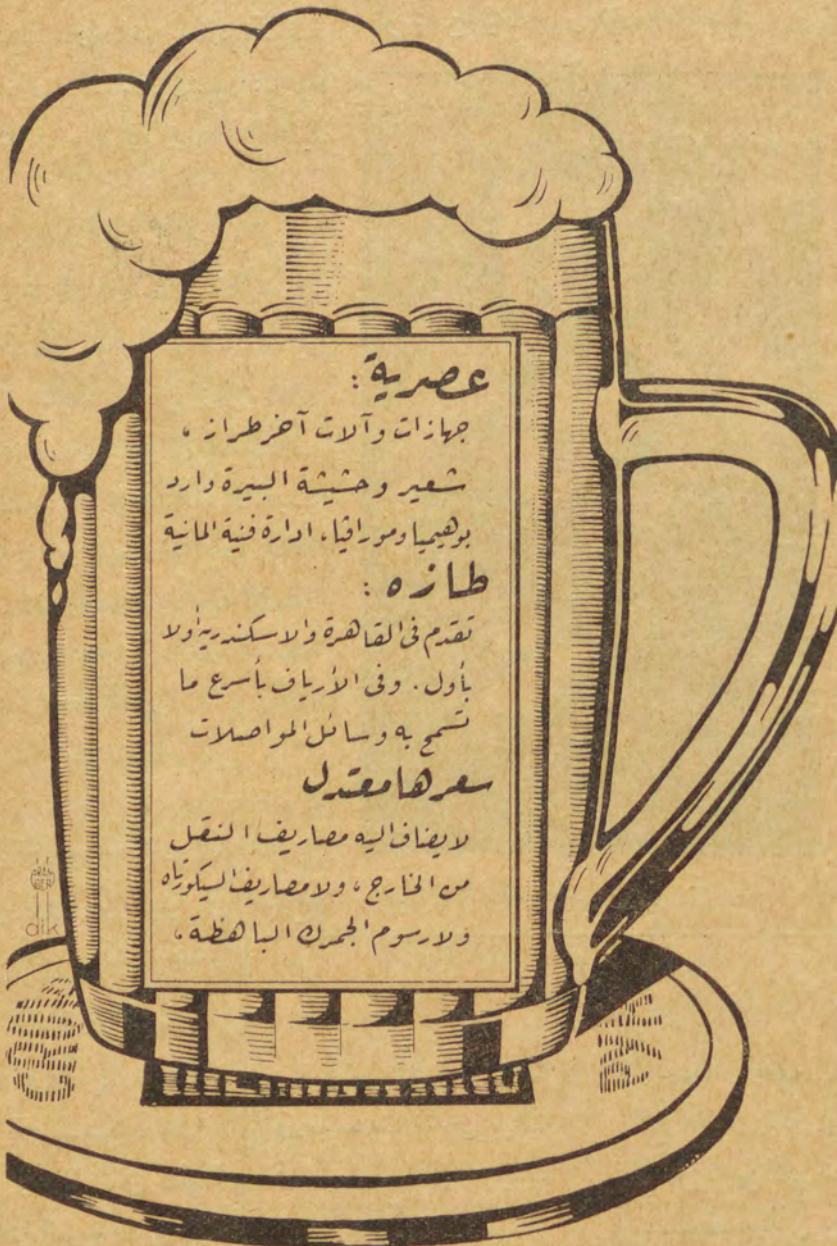 عصرية :
جهازات وآلات آخر طراز ،
شعير وحشيشة البيرة وارد
بوهيميا ومورافيا، ادارة فنية المانية
طازه :
تقدم فى القاهرة والاسكندرية أولا
بأول . وفى الأرياف بأسرع ما
تسمح به وسائل المواصلات
سعرها معتدل
لا يضاف اليه مصاريف النقل
من الخارج ، ولا مصاريف السيكورتاه
ولا رسوم الجمرك الباهظة ،
dik